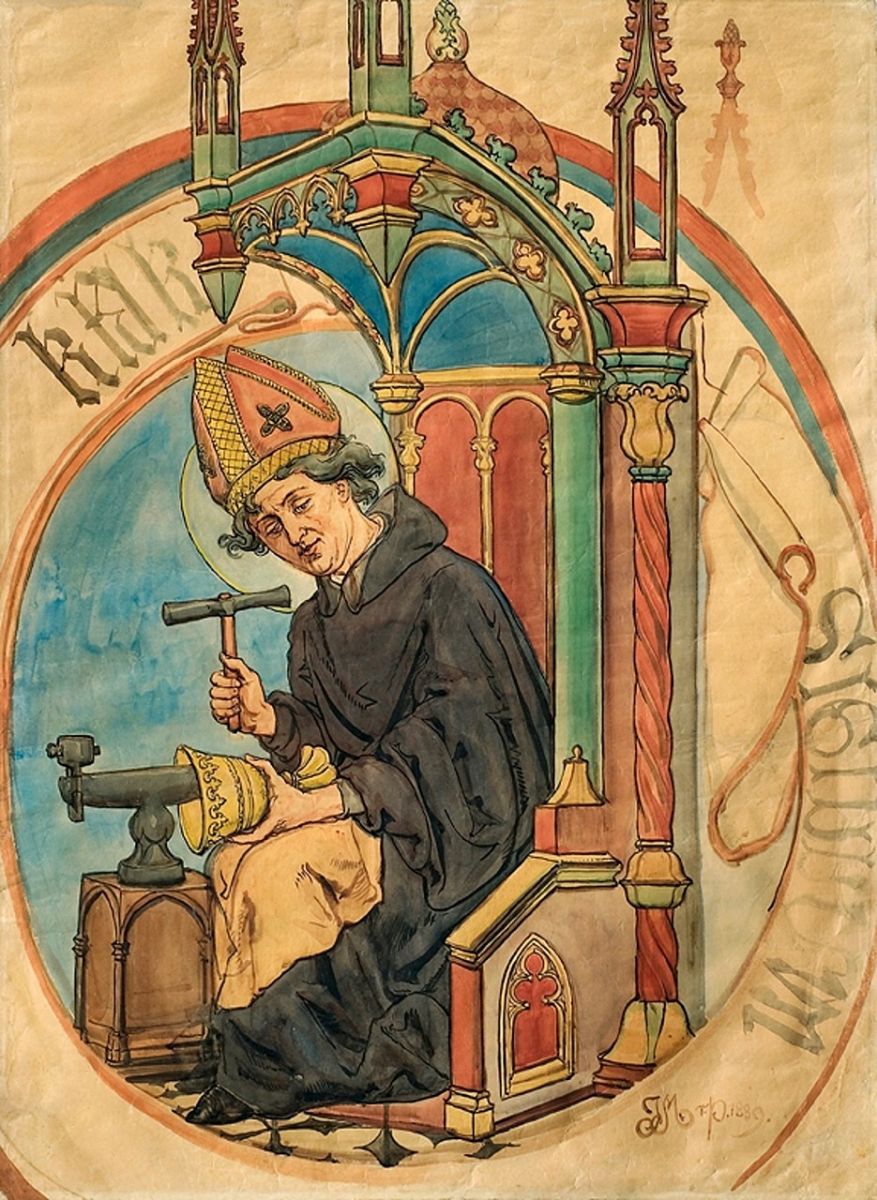 krak
sigillum
JM r.p. 1889.